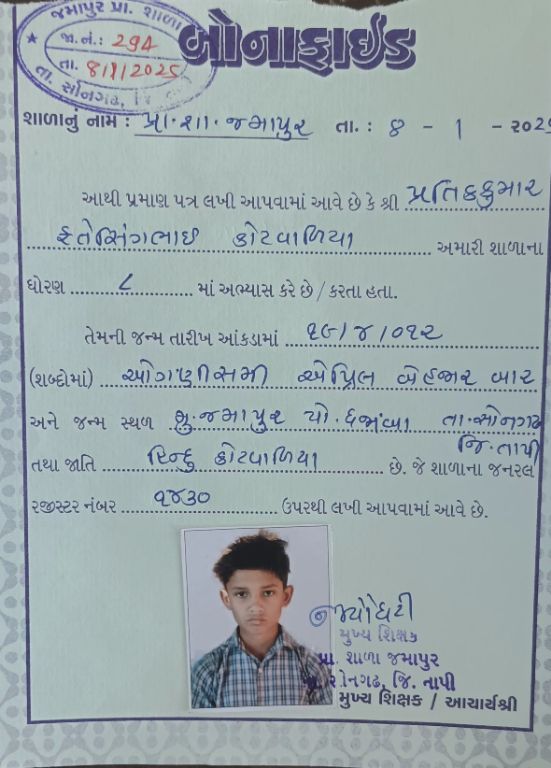 જમાપુર પ્રા. શાળા
જા.નં.: 294
તા. 8/1/2025
તા. સોનગઢ,
બોનાફાઈડ
શાળાનું નામ : પ્રા.શા.જમાપુર તા. : ૪ - 1 - ૨૦૨૫
આથી પ્રમાણ પત્ર લખી આપવામાં આવે છે કે શ્રી પ્રતિકકુમાર
ફતેસિંગભાઇ કોટવાળિયા અમારી શાળાના
ધોરણ ૮ માં અભ્યાસ કરે છે / કરતા હતા.
તેમની જન્મ તારીખ આંકડામાં ૧૯/૪/૦૧૨
(શબ્દોમાં) ઓગણીસમી એપ્રિલ બેહજાર બાર
અને જન્મ સ્થળ મુ.જમાપુર પો.ધજાંબા તા.સોનગઢ
જિ.તાપી
તથા જાતિ હિન્દુ કોટવાળિયા છે. જે શાળાના જનરલ
રજીસ્ટર નંબર ૧૪૩૦ ઉપરથી લખી આપવામાં આવે છે.
મુખ્ય શિક્ષક
પ્રા. શાળા જમાપુર
સોનગઢ, જિ. તાપી
મુખ્ય શિક્ષક / આચાર્યશ્રી